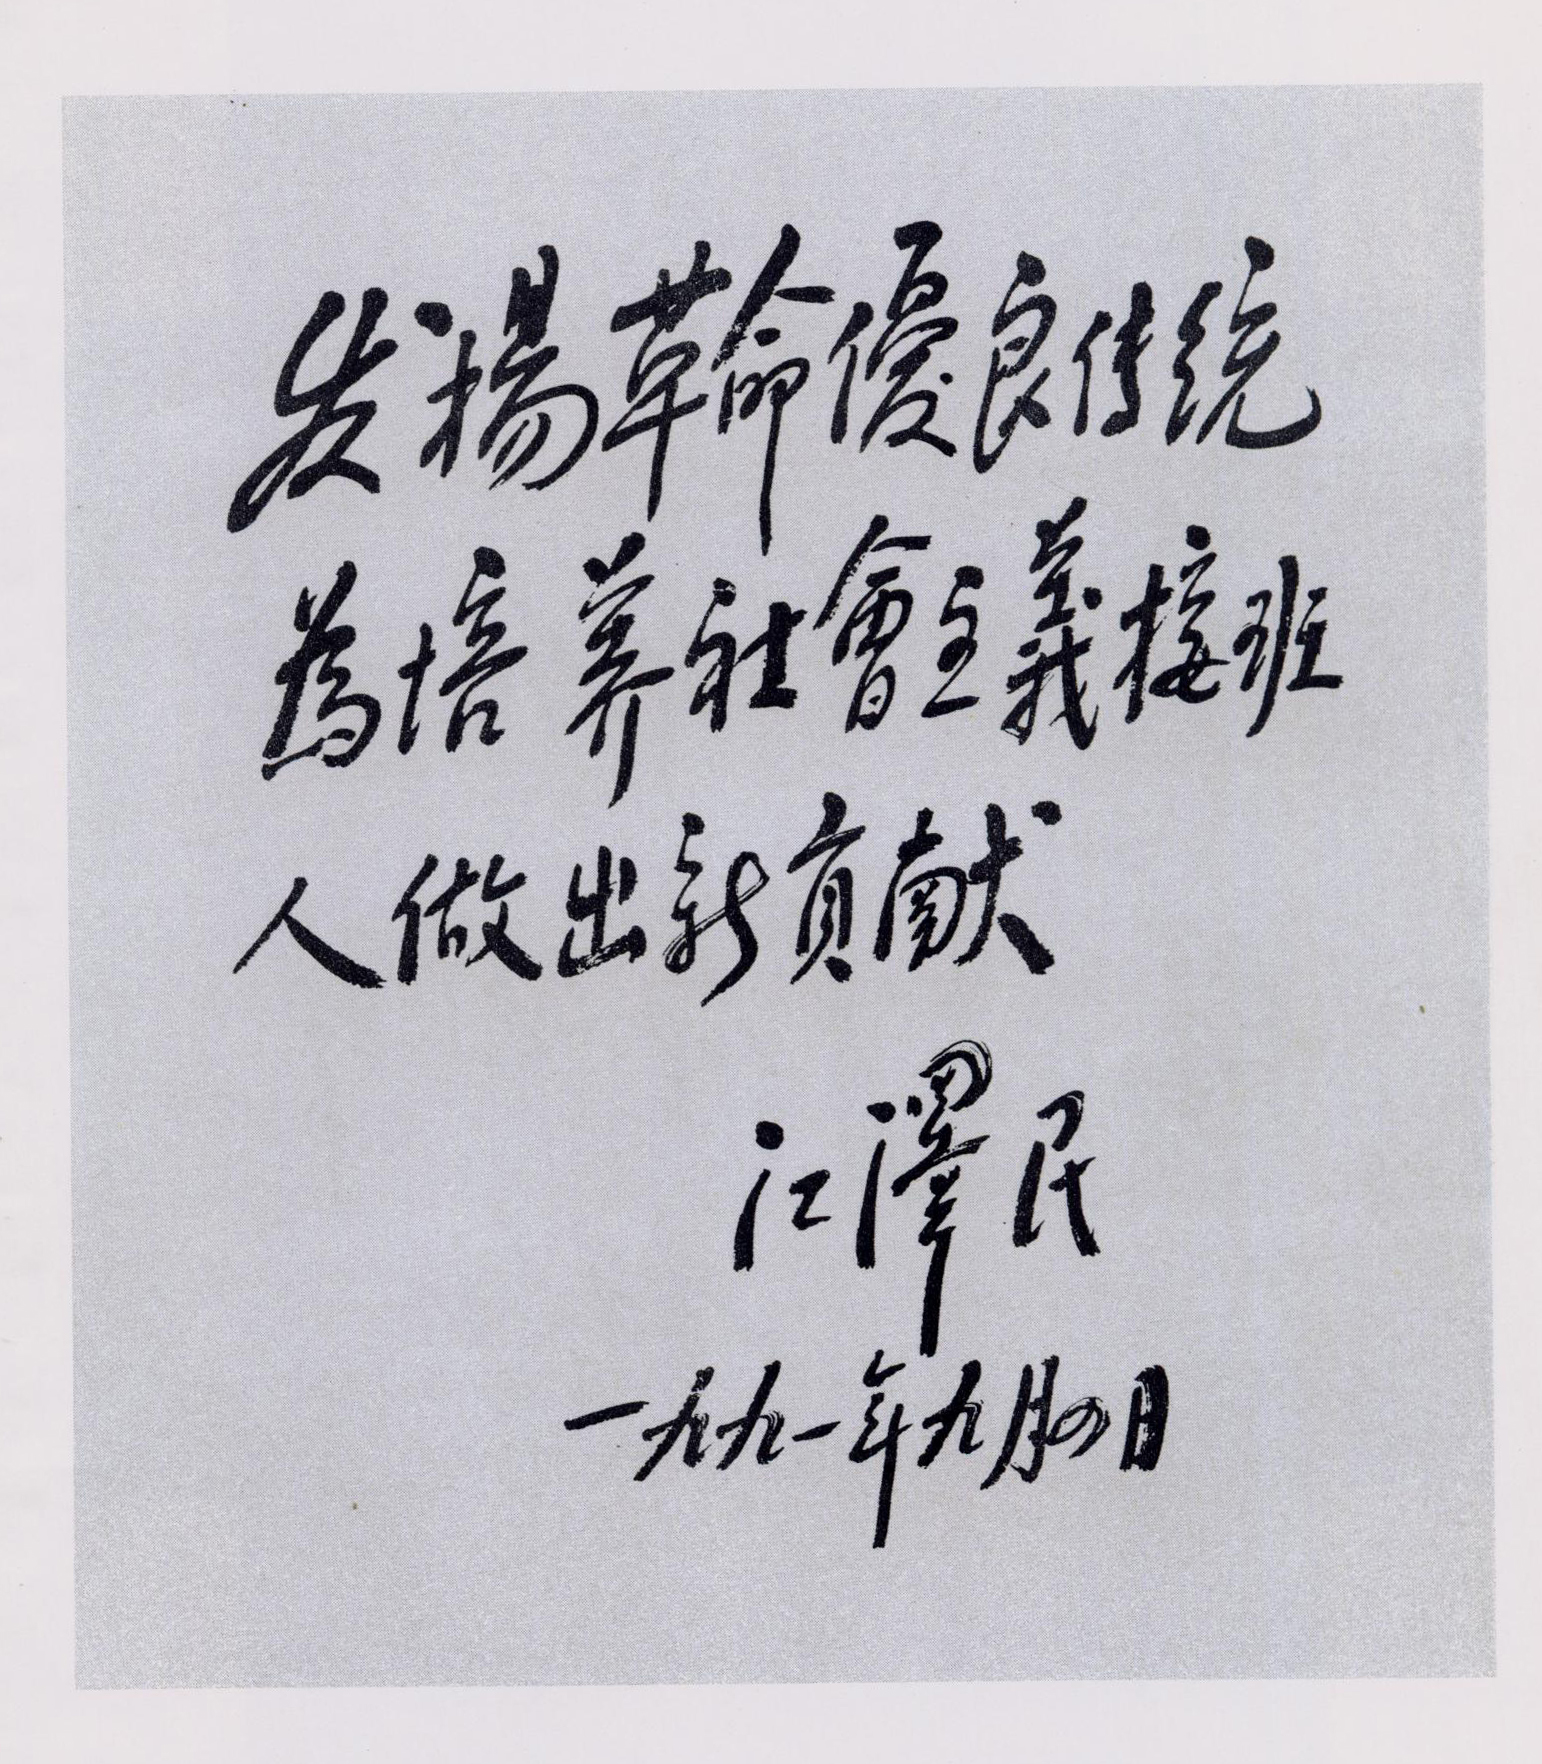 发揚革命優良传统
為培养社會主義接班
人做出新貢献
江澤民
一九九一年九月四日